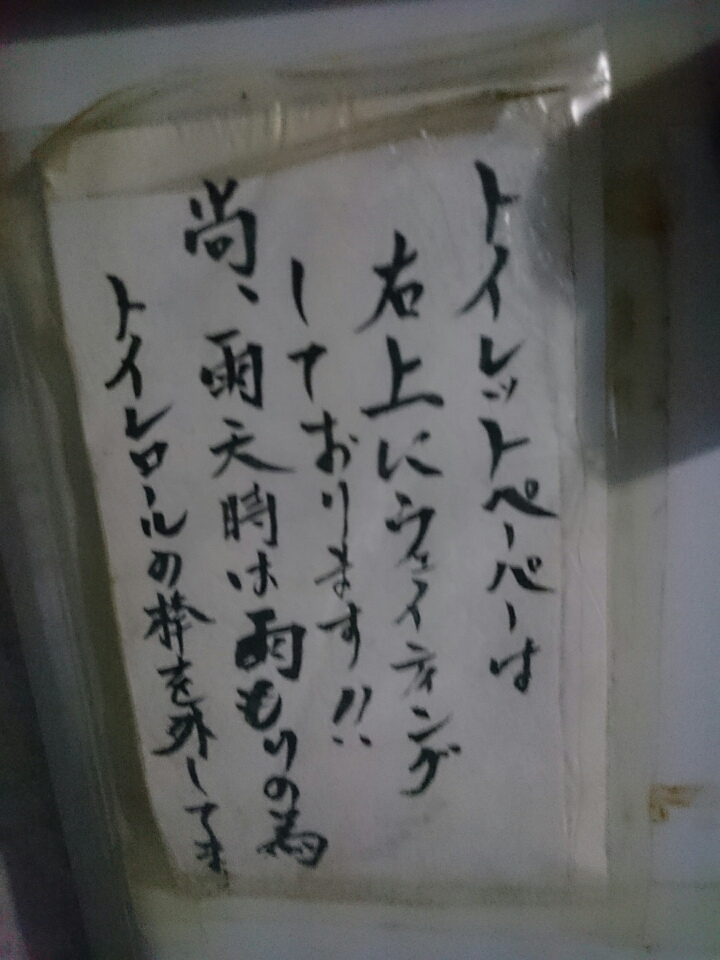 トイレットペーパーは
右上にウェイティング
しております!!
尚、雨天時は雨もりの為
トイレロールの棒を外してま